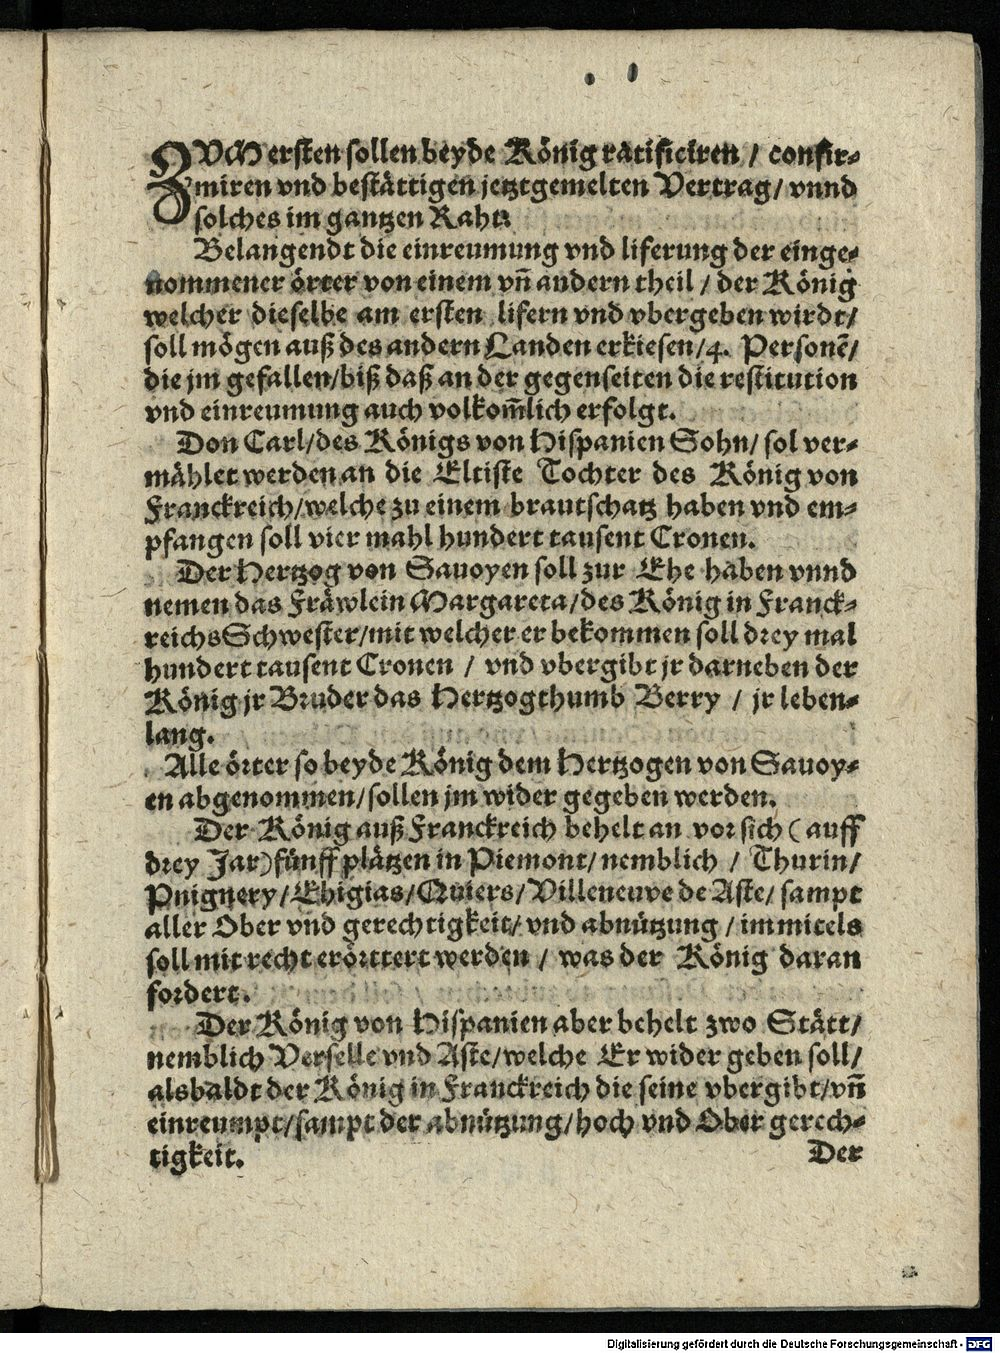 ZVM ersten sollen beyde König ratificiren / confir-
miren vnd bestättigen jetztgemelten Vertrag/ vnnd
solches im gantzen Raht:
Belangendt die einreumung vnd liferung der einge-
nommener örter von einem vn̄ andern theil / der König
welcher dieselbe am ersten lifern vnd vbergeben wirdt/
soll mögen auß des andern Landen erkiesen/4. Personē/
die jm gefallen/biß daß an der gegenseiten die restitution
vnd einreumung auch volkom̄lich erfolgt.
Don Carl/des Königs von Hispanien Sohn/ sol ver-
mählet werden an die Eltiste Tochter des König von
Franckreich/welche zu einem brautschatz haben vnd em-
pfangen soll vier mahl hundert tausent Cronen.
Der Hertzog von Sauoyen soll zur Ehe haben vnnd
nemen das Fräwlein Margareta/des König in Franck-
reichs Schwester/mit welcher er bekommen soll drey mal
hundert tausent Cronen / vnd vbergibt jr darneben der
König jr Bruder das Hertzogthumb Berry / jr leben-
lang.
Alle örter so beyde König dem Hertzogen von Sauoy-
en abgenommen/sollen jm wider gegeben werden.
Der König auß Franckreich behelt an vor sich ( auff
drey Jar)fünff plätzen in Piemont/ nemblich / Thurin/
Puignery/Chigias/Quiers/Villeneuve de Aste/ sampt
aller Ober vnd gerechtigkeit/ vnd abnützung / immitels
soll mit recht erörttert werden / was der König daran
fordert.
Der König von Hispanien aber behelt zwo Stätt/
nemblich Verselle vnd Aste/welche Er wider geben soll/
alsbaldt der König in Franckreich die seine vbergibt/vn̄
einreumpt/sampt der abnützung/hoch vnd Ober gerech-
tigkeit.
Der
Digitalisierung gefördert durch die Deutsche Forschungsgemeinschaft - DFG